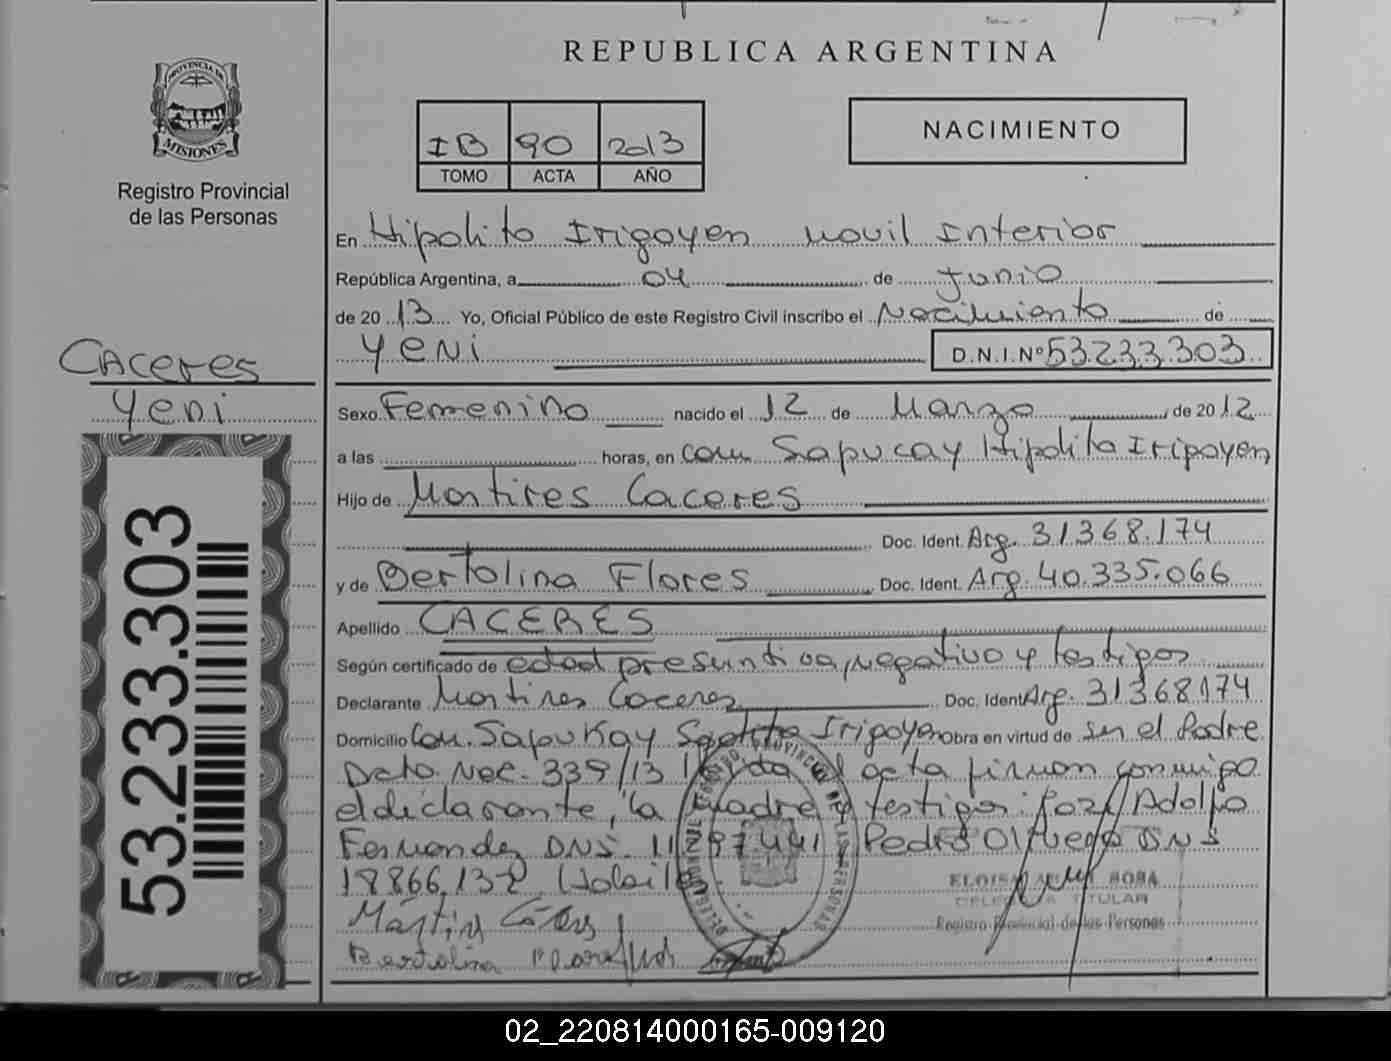 REPUBLICA ARGENTINA
PROVINCIA DE
MISIONES
Registro Provincial
de las Personas
IB 90 2013
TOMO ACTA AÑO
NACIMIENTO
En Hipolito Irigoyen Movil Interior
República Argentina, a 04 de Junio
de 2013 Yo, Oficial Público de este Registro Civil inscribo el Nacimiento de
Yeni D.N.I.Nº 53.233.303
CACERES
Yeni
Sexo Femenino nacido el 12 de Marzo de 2012
a las horas, en Com Sapucay Hipolito Iripoyen
Hijo de Martires Caceres
Doc. Ident. Arg. 31.368.174
y de Bertolina Flores Doc. Ident. Arg. 40.335.066
Apellido CACERES
Según certificado de edad presuntiva, negativo y testigos
Declarante Martires Caceres Doc. Ident Arg. 31368174
Domicilio Com. Sapukay Irigoyen Obra en virtud de ser el Padre
Dcto Nac. 339/13 acta firman conmigo
el declarante, la madre y testigos: Adolfo
Fernandez DNI. Pedro DNI
18866.132
Bertolina
ELOISA SOSA
DELEGADA TITULAR
Registro Provincial de las Personas
53.233.303
02_220814000165-009120